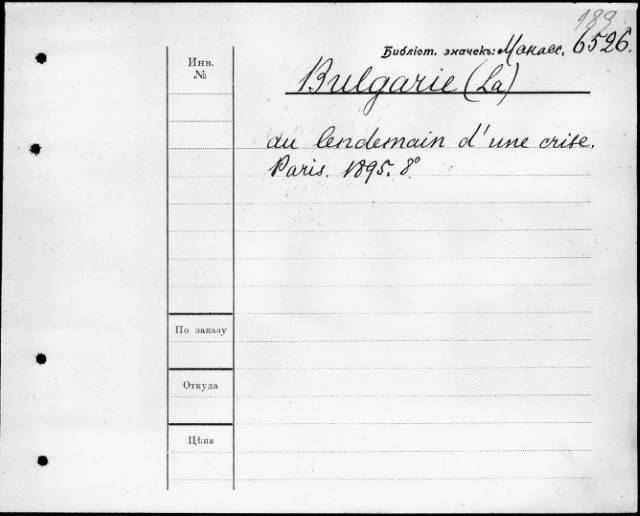 189
Библіот. значекъ: Макав. 6526.
Инв.
№
Bulgarie (La)
au lendemain d'une crise.
Paris. 1895. 8°
По заказу
Откуда
Цѣна